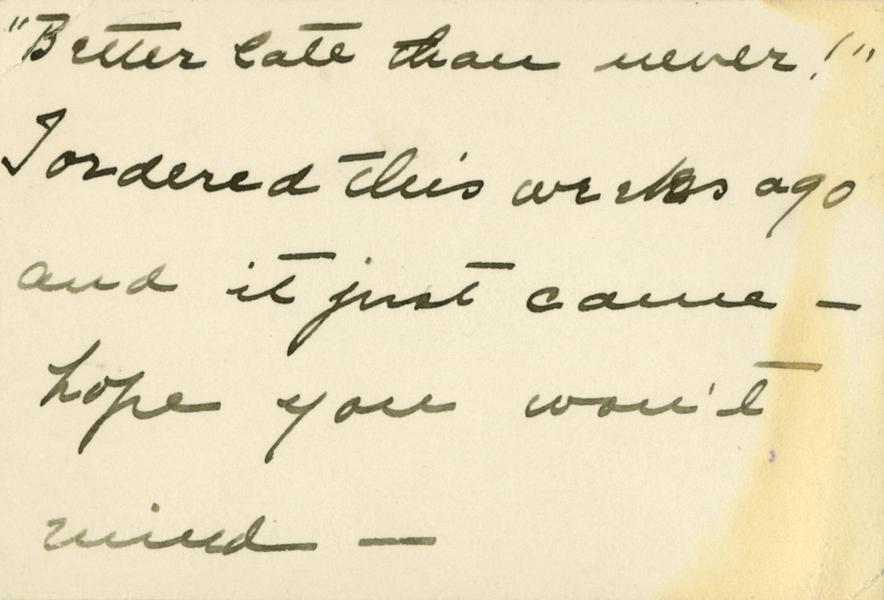 "Better late than never!"
I ordered this weeks ago
and it just came –
hope you won't
mind –